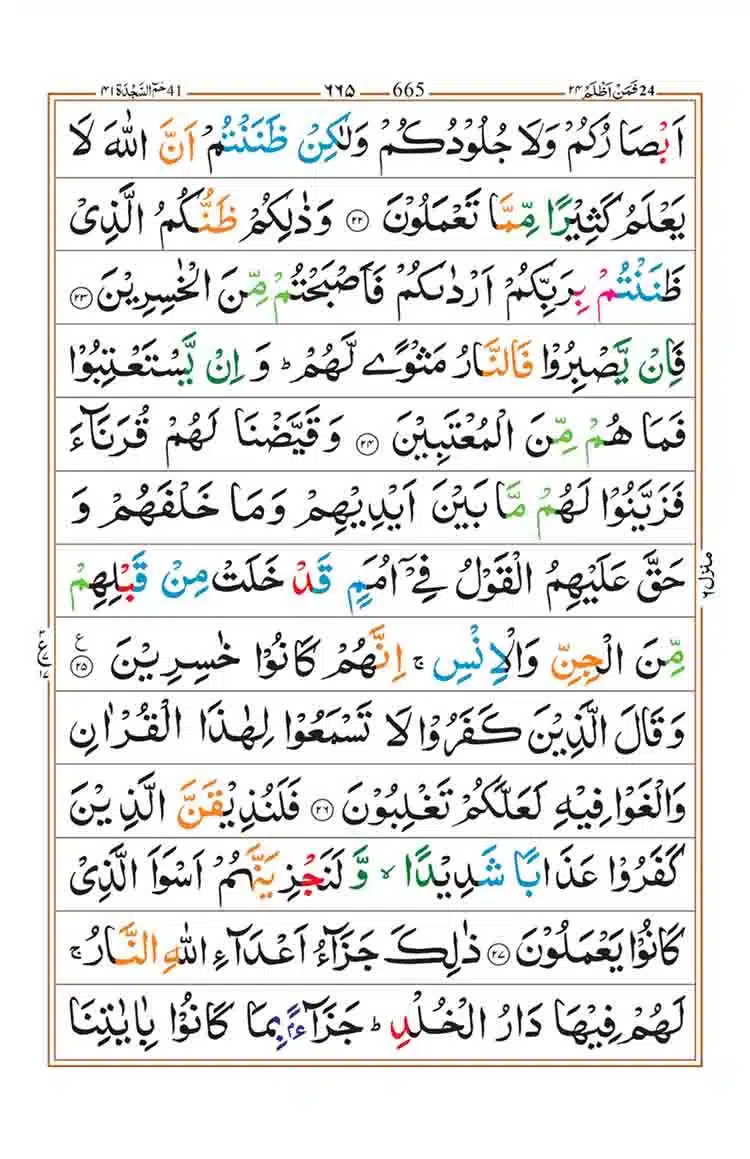 فَمَنْ اَظْلَمُ ٢٤ 24 665 ٦٦٥ حٰمٓ السَّجْدَة ٤١ 41
اَبْصَارُكُمْ وَلَا جُلُوْدُكُمْ وَلٰكِنْ ظَنَنْتُمْ اَنَّ اللّٰهَ لَا
يَعْلَمُ كَثِيْرًا مِّمَّا تَعْمَلُوْنَ ۝٢٢ وَذٰلِكُمْ ظَنُّكُمُ الَّذِىْ
ظَنَنْتُمْ بِرَبِّكُمْ اَرْدٰىكُمْ فَاَصْبَحْتُمْ مِّنَ الْخٰسِرِيْنَ ۝٢٣
فَاِنْ يَّصْبِرُوْا فَالنَّارُ مَثْوًى لَّهُمْ ؕ وَ اِنْ يَّسْتَعْتِبُوْا
فَمَا هُمْ مِّنَ الْمُعْتَبِيْنَ ۝٢٤ وَقَيَّضْنَا لَهُمْ قُرَنَآءَ
فَزَيَّنُوْا لَهُمْ مَّا بَيْنَ اَيْدِيْهِمْ وَمَا خَلْفَهُمْ وَ
حَقَّ عَلَيْهِمُ الْقَوْلُ فِىْۤ اُمَمٍ قَدْ خَلَتْ مِنْ قَبْلِهِمْ
مِّنَ الْجِنِّ وَالْاِنْسِ ۚ اِنَّهُمْ كَانُوْا خٰسِرِيْنَ ۝٢٥ ع
وَقَالَ الَّذِيْنَ كَفَرُوْا لَا تَسْمَعُوْا لِهٰذَا الْقُرْاٰنِ
وَالْغَوْا فِيْهِ لَعَلَّكُمْ تَغْلِبُوْنَ ۝٢٦ فَلَنُذِيْقَنَّ الَّذِيْنَ
كَفَرُوْا عَذَابًا شَدِيْدًا ۙ وَّلَنَجْزِيَنَّهُمْ اَسْوَاَ الَّذِىْ
كَانُوْا يَعْمَلُوْنَ ۝٢٧ ذٰلِكَ جَزَآءُ اَعْدَآءِ اللّٰهِ النَّارُ ۚ
لَهُمْ فِيْهَا دَارُ الْخُلْدِ ؕ جَزَآءًۢ بِمَا كَانُوْا بِاٰيٰتِنَا
منزل ٦